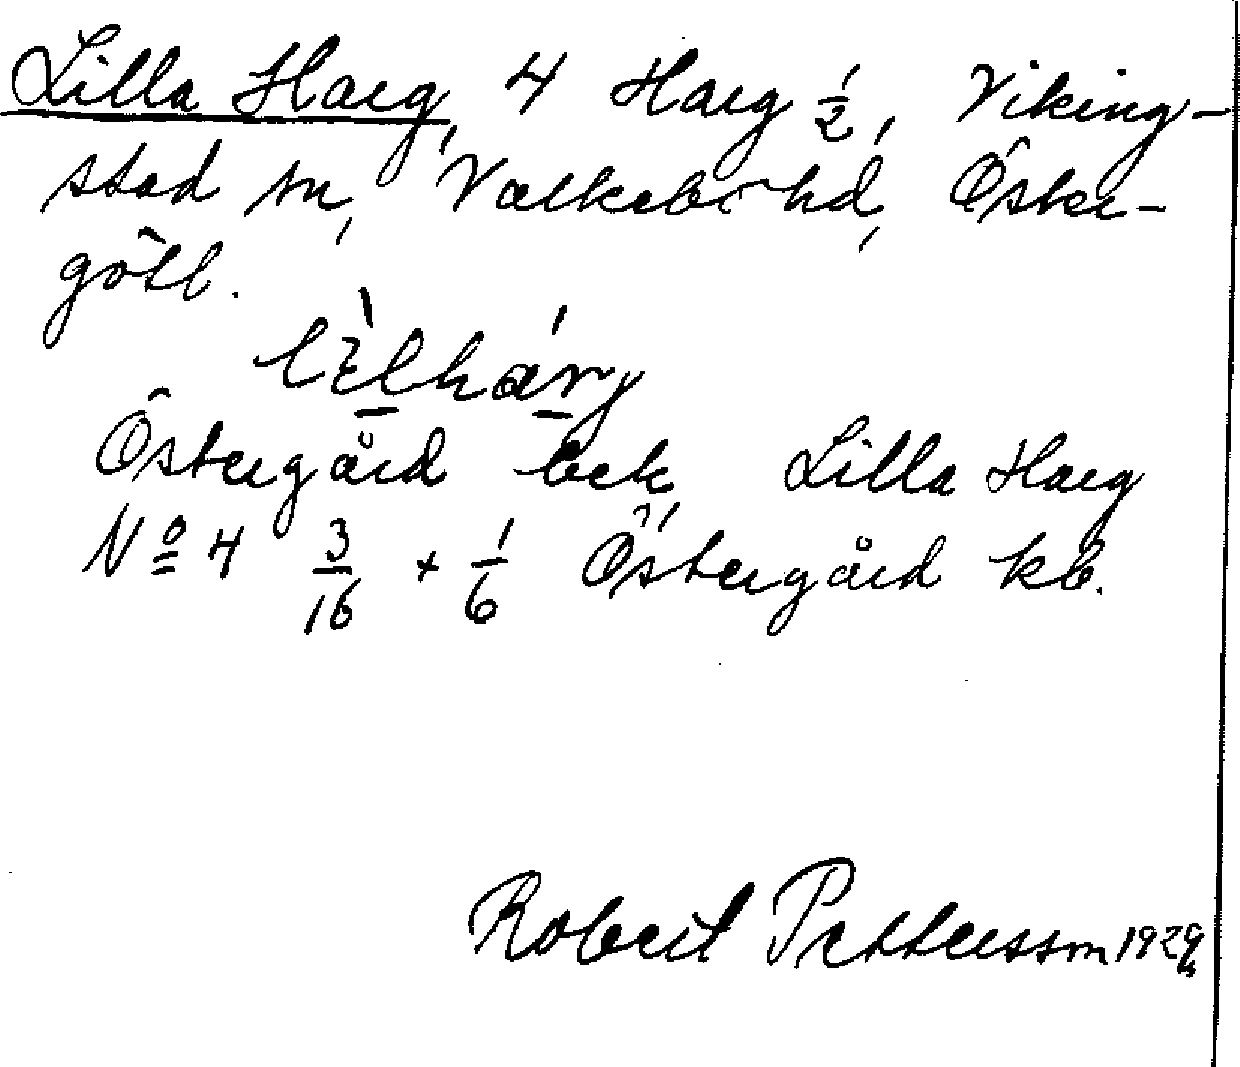 Lilla Harg, 4 Harg 1/2, Viking-
stad sn, Valkebo hd, Öster-
götl.
Östergård beb. Lilla Harg
No 4 3/16 + 1/6 Östergård kb.
Robert Pettersson 1929